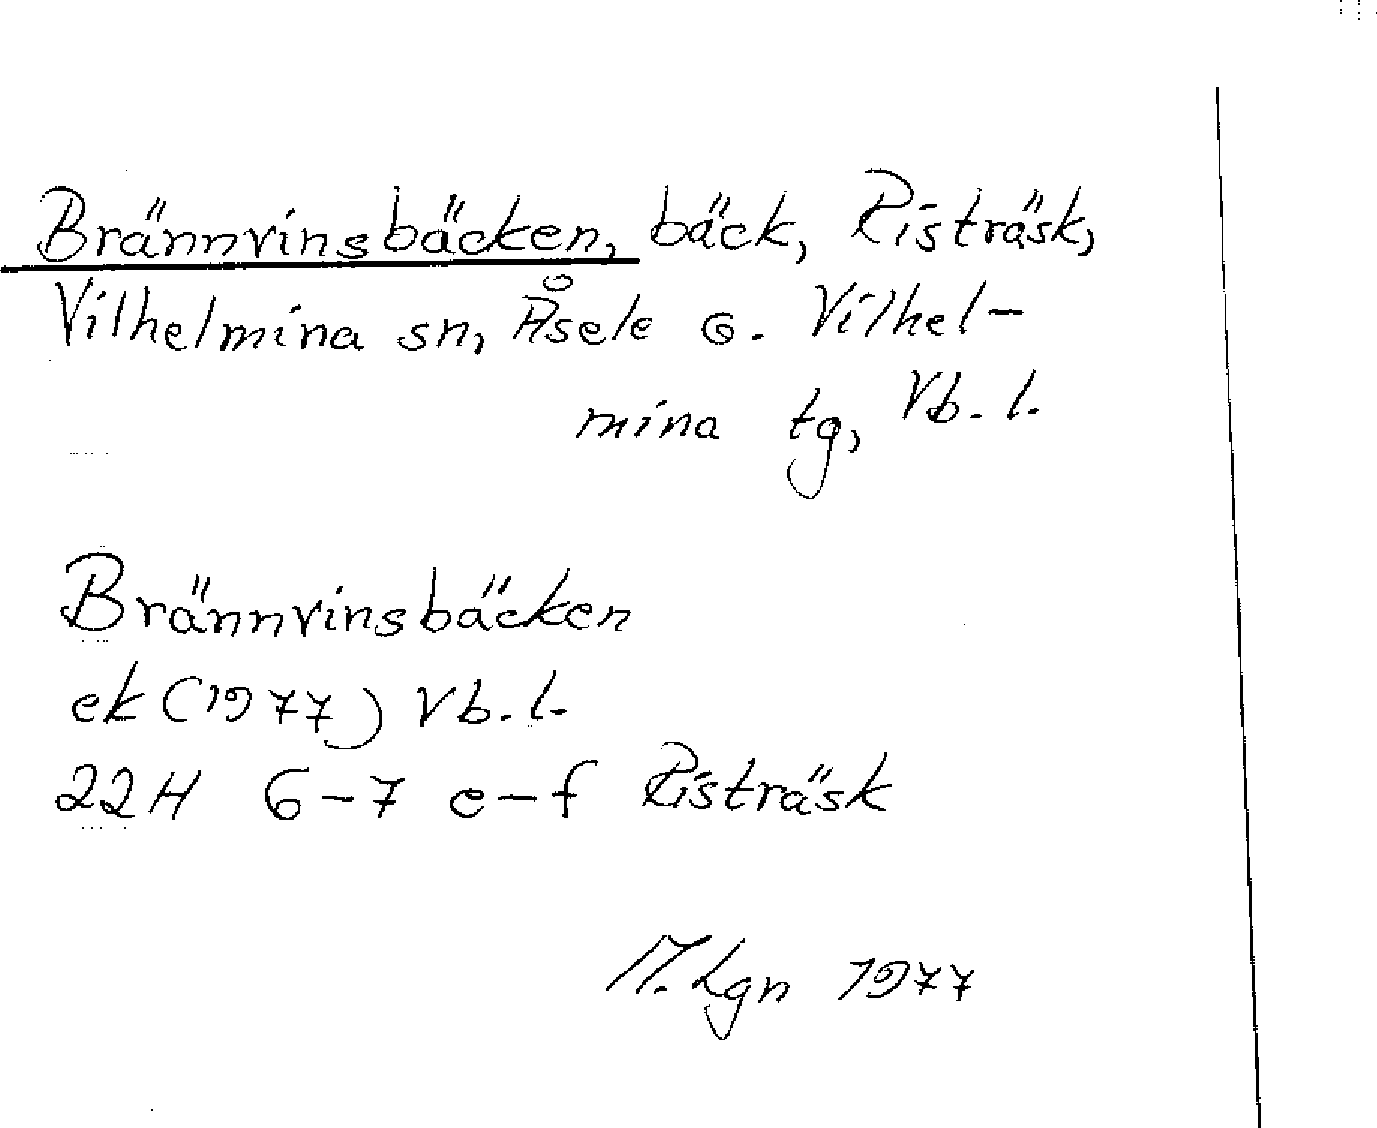 Brännvinsbäcken, bäck, Risträsk,
Vilhelmina sn, Åsele G. Vilhel-
mina tg, Vb. l.
Brännvinsbäcken
ek (1977) Vb. l.
22H 6-7 e-f Risträsk
M. Lgn 1977